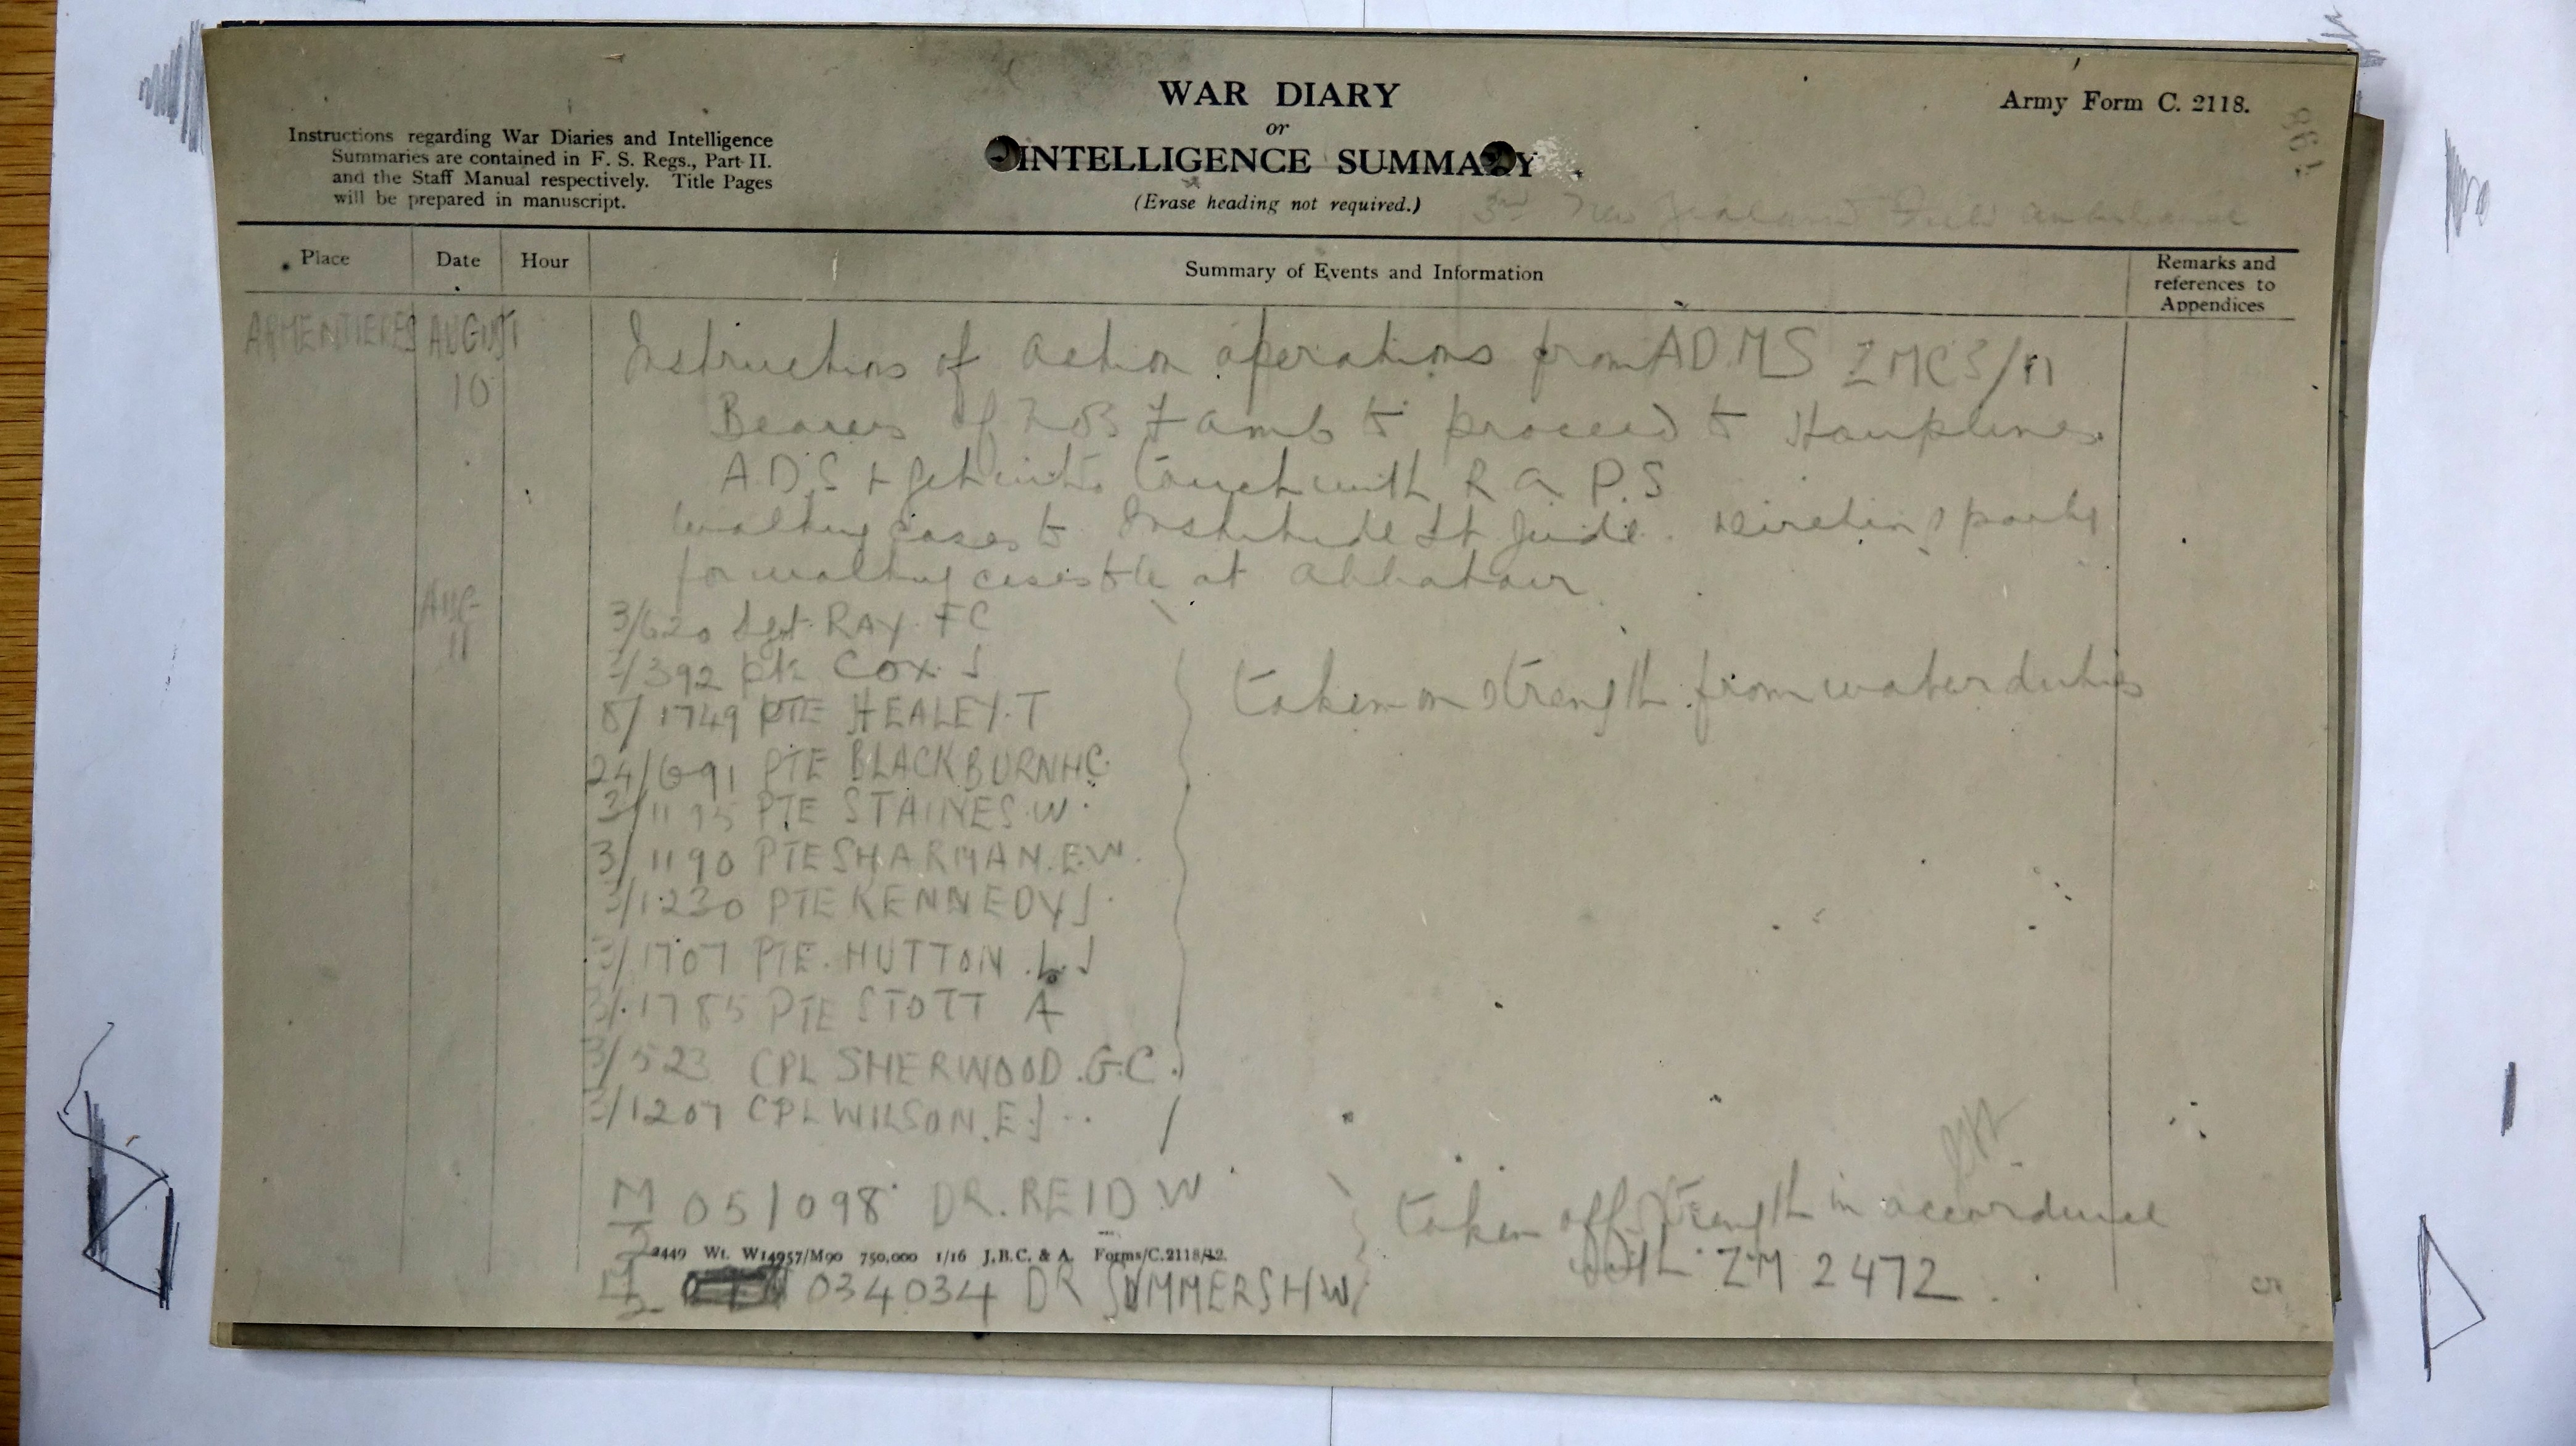 WAR DIARY
or
INTELLIGENCE SUMMARY
(Erase heading not required.)
Army Form C. 2118.
Instructions regarding War Diaries and Intelligence
Summaries are contained in F. S. Regs., Part II.
and the Staff Manual respectively. Title Pages
will be prepared in manuscript.
3rd New Zealand Field Ambulance
Place Date Hour Summary of Events and Information Remarks and references to Appendices
ARMENTIERES AUGUST 10 Instructions of action operations from ADMS ZMC3/11
Bearers of F amb to proceed to Houplines
A.D.S + get into touch with R a P.S
Walking cases to Institude St Jude. Directing party
for walking cases to be at abbatoir
AUG 11
3/620 Sgt. RAY. FC
3/392 pte COX. J
8/1749 PTE HEALEY. T taken on strength from water duties
24/691 PTE BLACKBURN HC
3/1195 PTE STAINES. W.
3/1190 PTE SHARMAN. E.W.
3/1230 PTE KENNEDY J.
3/1707 PTE. HUTTON. L. J
3/1785 PTE STOTT A
3/523 CPL SHERWOOD. G.C.
3/1207 CPL WILSON. E J
M/2 051098 DR. REID W taken off strength in accordance
2449 Wt. W14957/M90 750,000 1/16 J.B.C. & A. Forms/C.2118/12.
M/2 034034 DR SUMMERS HW with ZM 2472.